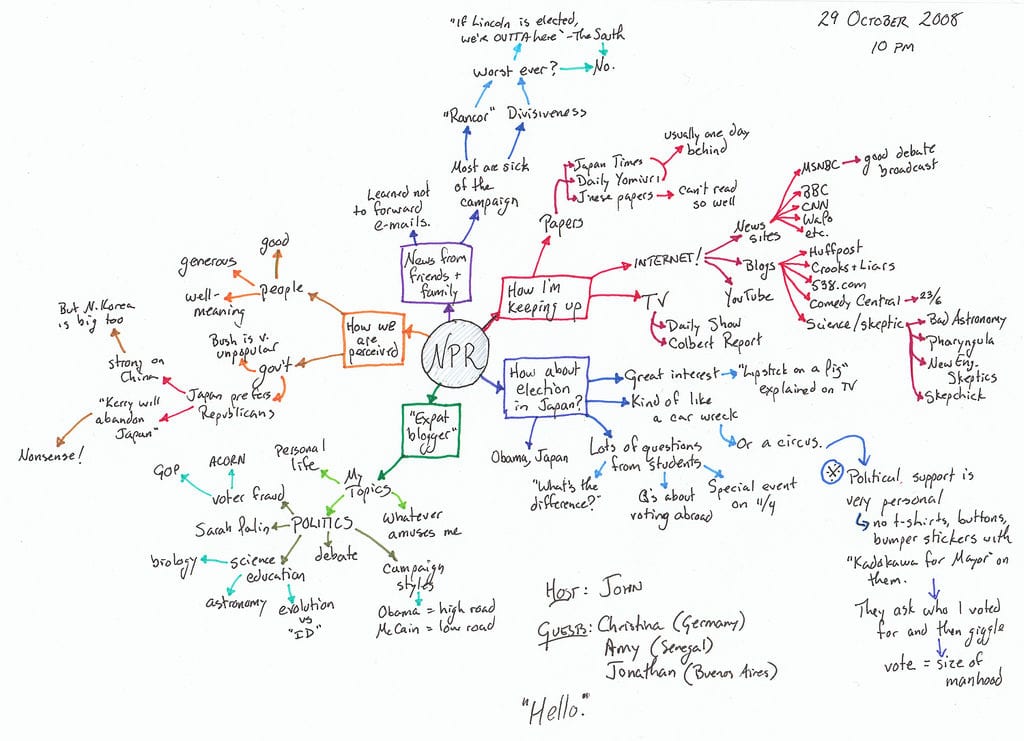 29 October 2008
10 PM
"If Lincoln is elected,
we're OUTTA here" - The South
Worst ever?
No.
"Rancor"
Divisiveness
Most are sick
of the
campaign
Learned not
to forward
e-mails.
News from
friends +
family
usually one day
behind
Japan Times
Daily Yomiuri
J'nese papers
can't read
so well
Papers
How I'm
keeping up
INTERNET!
News
sites
MSNBC
good debate
broadcast
BBC
CNN
WaPo
etc.
Blogs
Huffpost
Crooks + Liars
538.com
Comedy Central
23/6
Science/skeptic
Bad Astronomy
Pharyngula
New Eng.
Skeptics
Skepchick
YouTube
TV
Daily Show
Colbert Report
good
generous
people
well-
meaning
How we
are
perceived
Bush is v.
unpopular
gov't
But N. Korea
is big too
strong on
China
Japan prefers
Republicans
"Kerry will
abandon
Japan"
Nonsense!
NPR
How about
election
in Japan?
Great interest
"Lipstick on a Pig"
explained on TV
Kind of like
a car wreck
Or a circus.
Obama, Japan
Lots of questions
from students
"What's the
difference?"
Q's about
voting abroad
Special event
on 11/4
Political support is
very personal
no t-shirts, buttons,
bumper stickers with
"Kadokawa for Mayor" on
them.
They ask who I voted
for and then giggle
vote = size of
manhood
"Expat
blogger"
My
Topics
Personal
life
Whatever
amuses me
POLITICS
GOP
ACORN
voter fraud
Sarah Palin
debate
science
education
biology
astronomy
evolution
vs
"ID"
Campaign
styles
Obama = high road
McCain = low road
HOST: JOHN
GUESTS: Christina (Germany)
Amy (Senegal)
Jonathan (Buenos Aires)
"Hello."